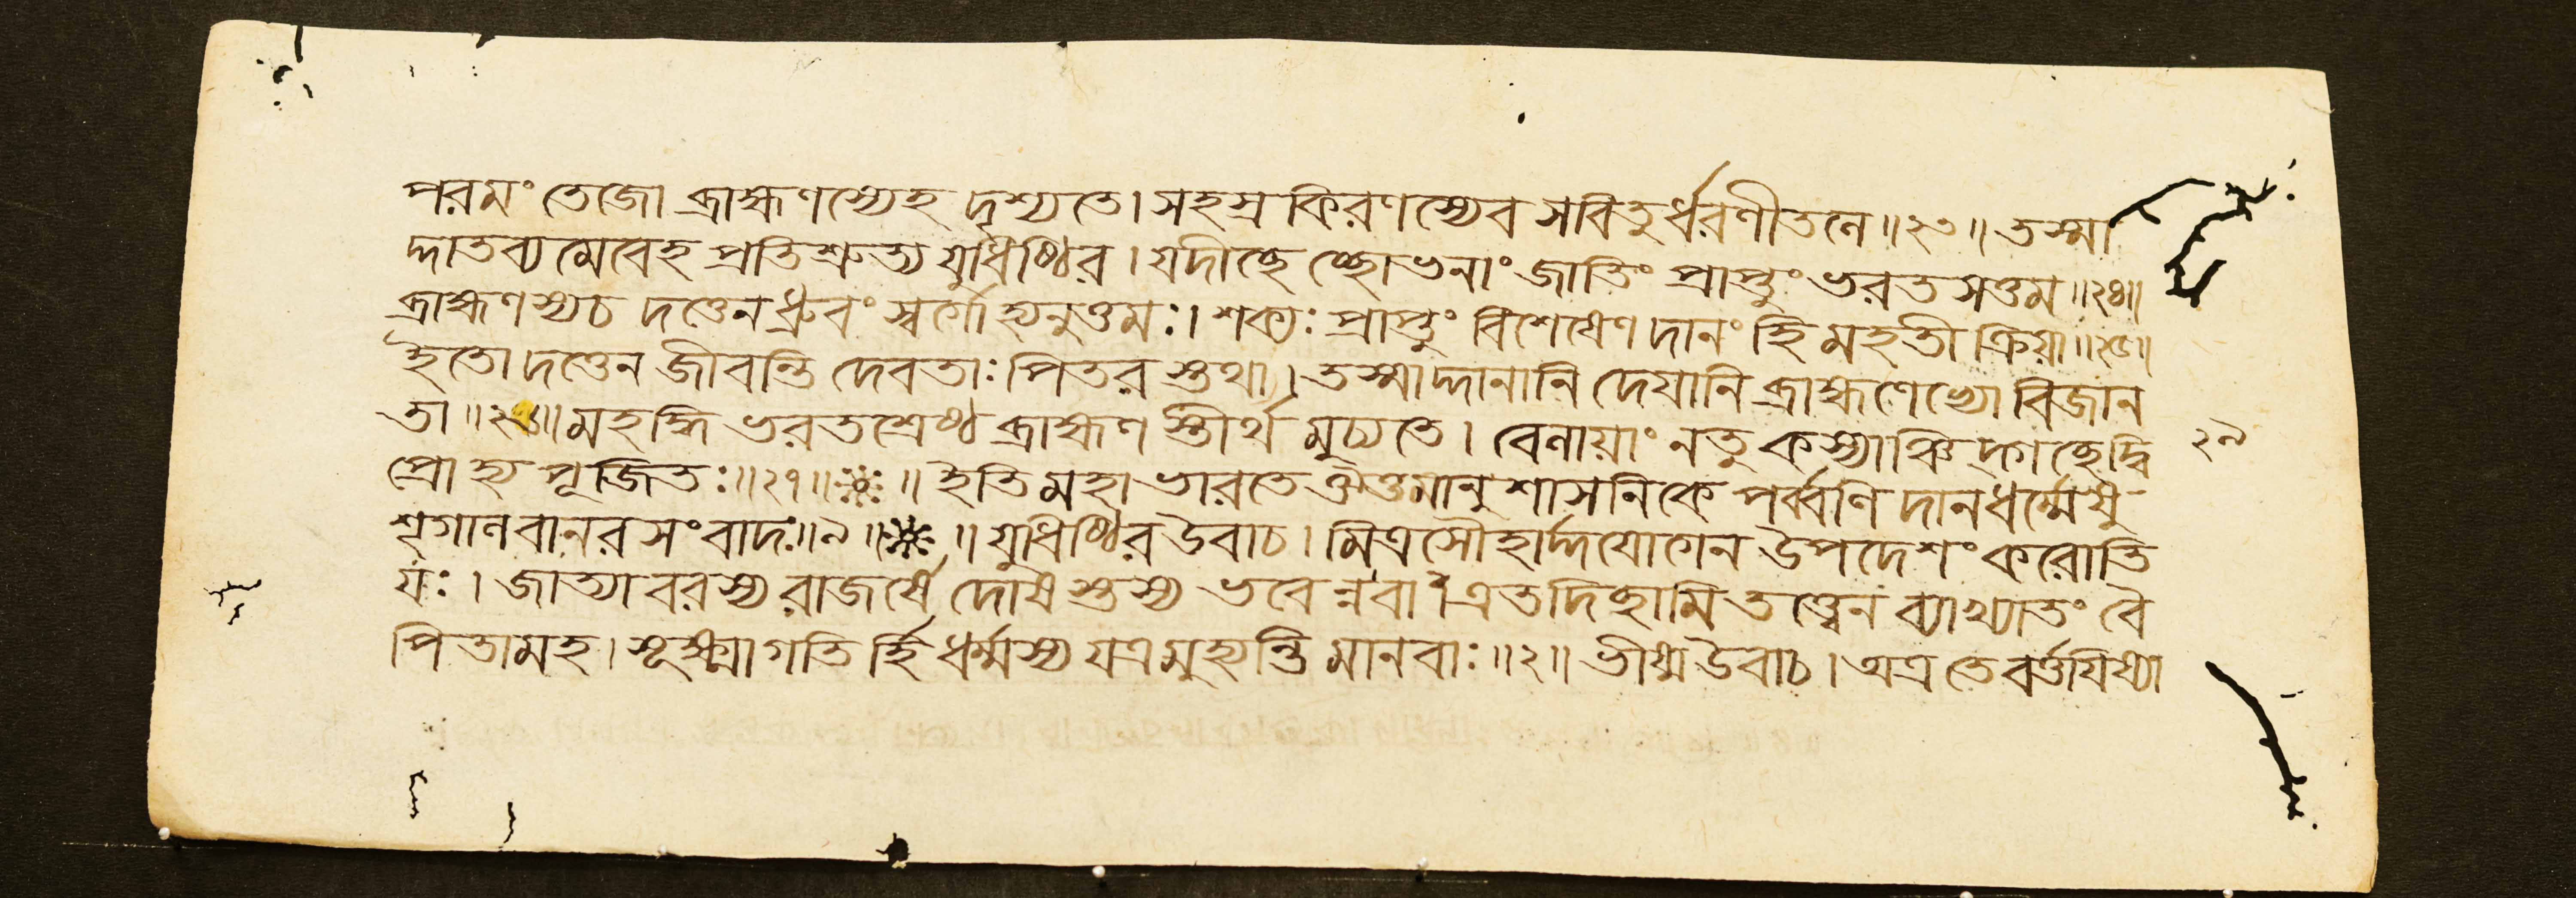 পরমং তেজো ব্রাহ্মণস্যেহ দৃশ্যতে। সহস্রকিরণস্যেব সবিতুর্ধরণীতলে॥২৩॥ তস্মা
দ্দাতব্যমেবেহ প্রতিশ্রুত্য যুধিষ্ঠির। যদীচ্ছেচ্ছোভনাং জাতিং প্রাপ্তুং ভরতসত্তম॥২৪॥
ব্রাহ্মণস্য চ দত্তেন ধ্রুবং স্বর্গো হ্যনুত্তমঃ। শক্যঃ প্রাপ্তুং বিশেষেণ দানং হি মহতী ক্রিয়া॥২৫॥
ইতো দত্তেন জীবন্তি দেবতাঃ পিতরস্তথা। তস্মাদ্দানানি দেয়ানি ব্রাহ্মণেভ্যো বিজান
তা॥২৬॥ মহদ্ধি ভরতশ্রেষ্ঠ ব্রাহ্মণস্তীর্থমুচ্যতে। বেলায়াং ন তু কস্যাঞ্চিদ্গচ্ছেদ্বি
প্রো হ্যপূজিতঃ॥২৭॥ ॥ ইতি মহাভারতে ঔত্তমানুশাসনিকে পর্ব্বণি দানধর্ম্মেষু
শৃগালবানরসংবাদঃ॥৯॥ ॥ যুধিষ্ঠির উবাচ। মিত্রসৌহার্দ্দযোগেন উপদেশং করোতি
যঃ। জাত্যাবরস্য রাজর্ষে দোষস্তস্য ভবেন্নবা॥১ এতদিচ্ছামি তত্ত্বেন ব্যাখ্যাতং বৈ
পিতামহ। সূক্ষ্মা গতির্হি ধর্ম্মস্য যত্র মুহ্যন্তি মানবাঃ॥২॥ ভীষ্ম উবাচ। অত্র তে বর্ত্তয়িষ্যা
২৯